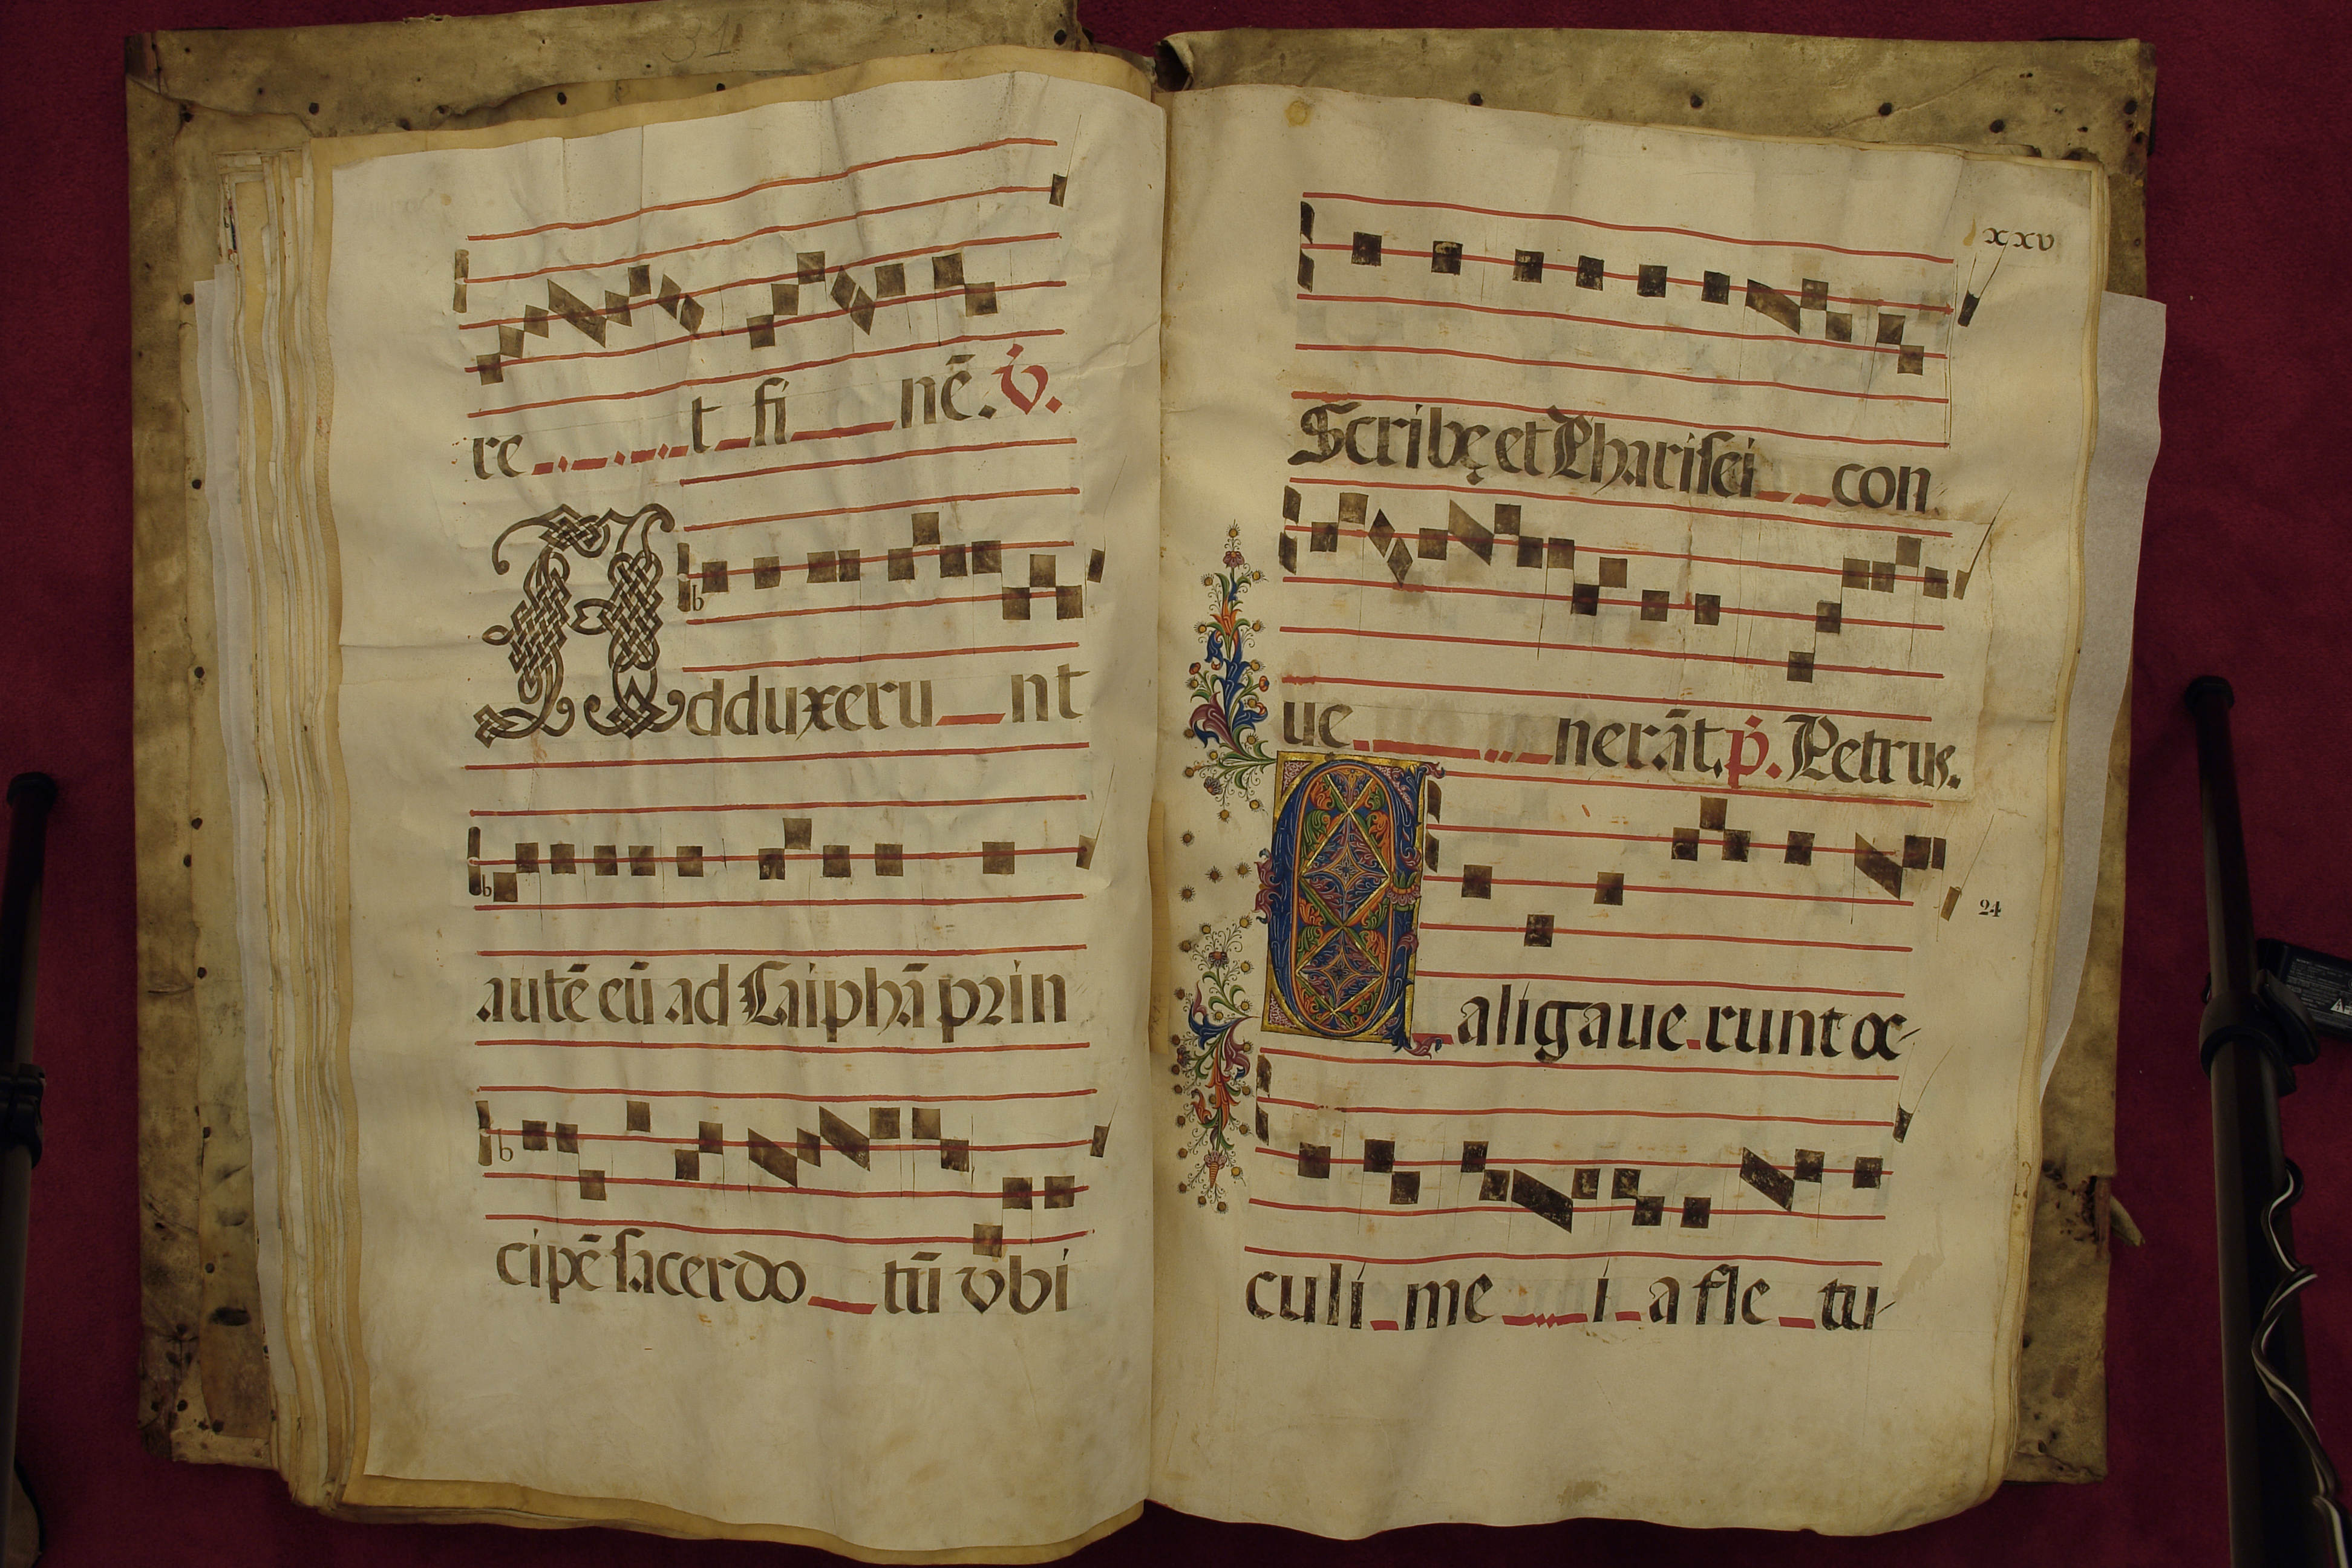 31
re t fi nē. ℣.
Adduxeru nt
autē eū ad Caiphā prin
cipē sacerdo tū vbi
xxv
Scribę et Pharisei con
ue nerāt. p̄. Petrus.
24
Caligaue runt oc
culi me i a fle tu